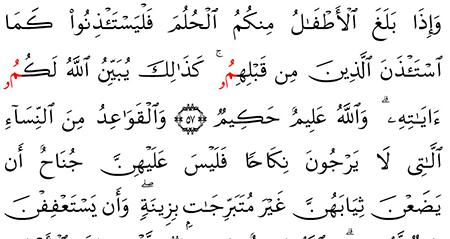 وَإِذَا بَلَغَ ٱلْأَطْفَٰلُ مِنكُمُ ٱلْحُلُمَ فَلْيَسْتَـْٔذِنُوا۟ كَمَا
ٱسْتَـْٔذَنَ ٱلَّذِينَ مِن قَبْلِهِمُۥ ۚ كَذَٰلِكَ يُبَيِّنُ ٱللَّهُ لَكُمُۥ
ءَايَٰتِهِۦ ۗ وَٱللَّهُ عَلِيمٌ حَكِيمٌ ٥٧ وَٱلْقَوَٰعِدُ مِنَ ٱلنِّسَآءِ
ٱلَّٰتِى لَا يَرْجُونَ نِكَاحًا فَلَيْسَ عَلَيْهِنَّ جُنَاحٌ أَن
يَضَعْنَ ثِيَابَهُنَّ غَيْرَ مُتَبَرِّجَٰتٍۭ بِزِينَةٍ ۖ وَأَن يَسْتَعْفِفْنَ